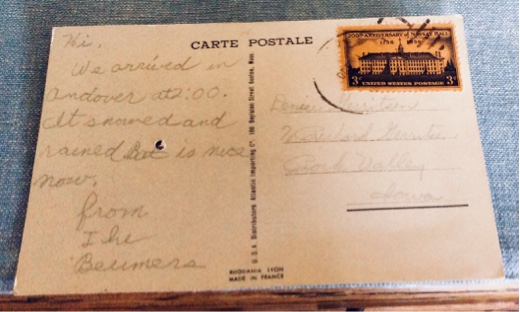 CARTE POSTALE
Hi.
We arrived in
Andover at 2:00.
It snowed and
rained but is nice
now.
from
The
Beumers
200TH ANNIVERSARY of NASSAU HALL
1756 1956
3¢ UNITED STATES POSTAGE 3¢
Rock Valley
Iowa
U.S.A. Distributors: Atlantic Importing Cº. 186 Boylston Street Boston, Mass
RHODANIA LYON
MADE IN FRANCE